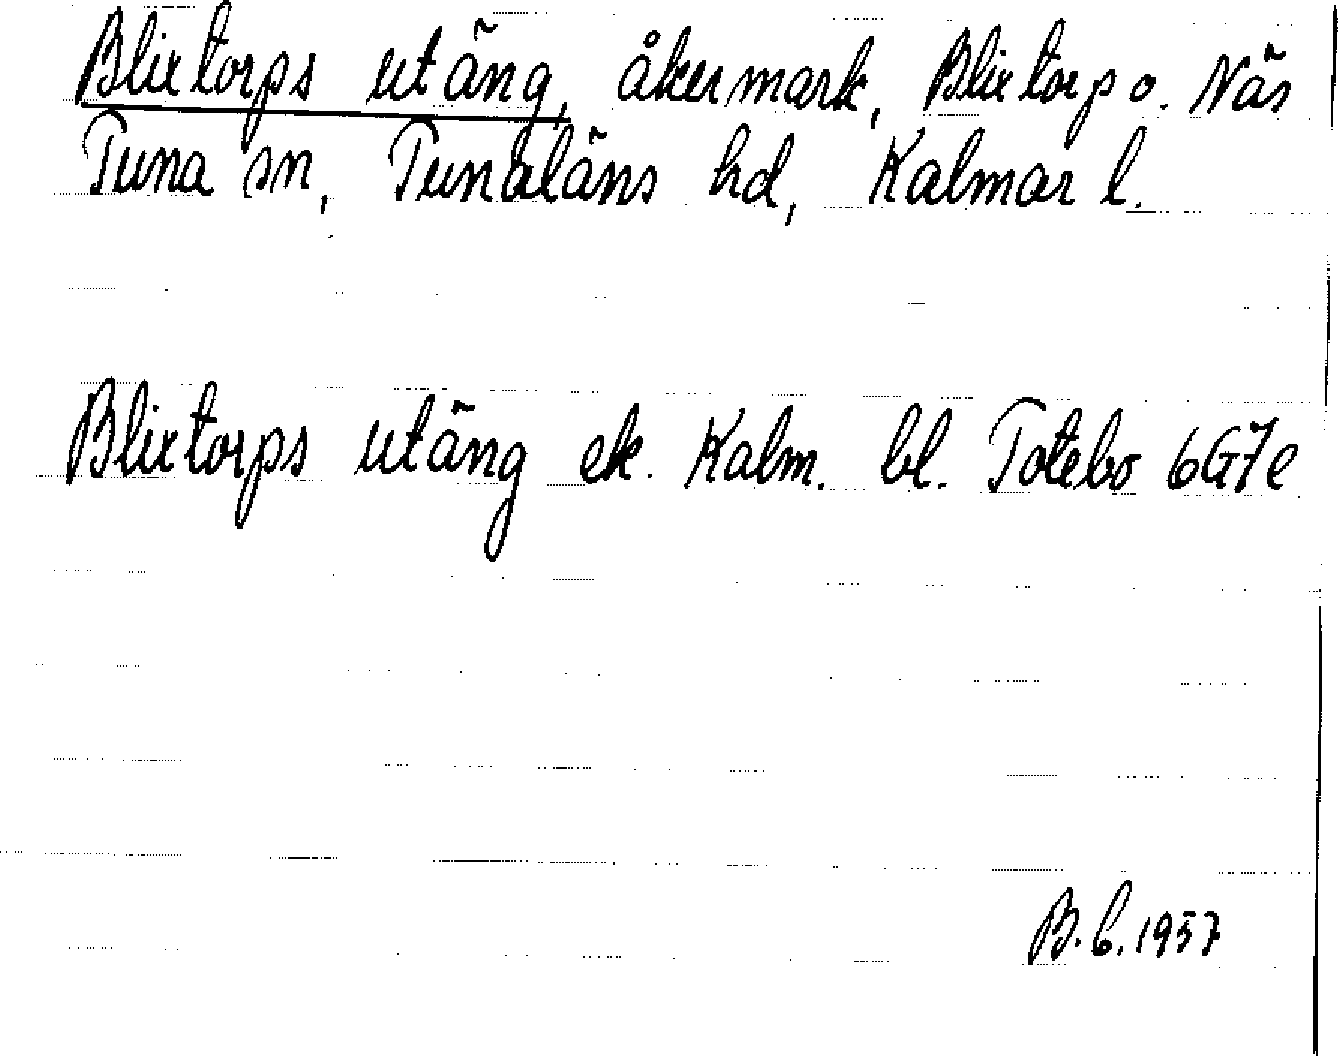 Blixtorps utäng, åkermark, Blixtorp o. Näs
Tuna sn, Tunaläns hd, Kalmar l.
Blixtorps utäng ek. Kalm. bl. Totebo 6G7e
B.b. 1957